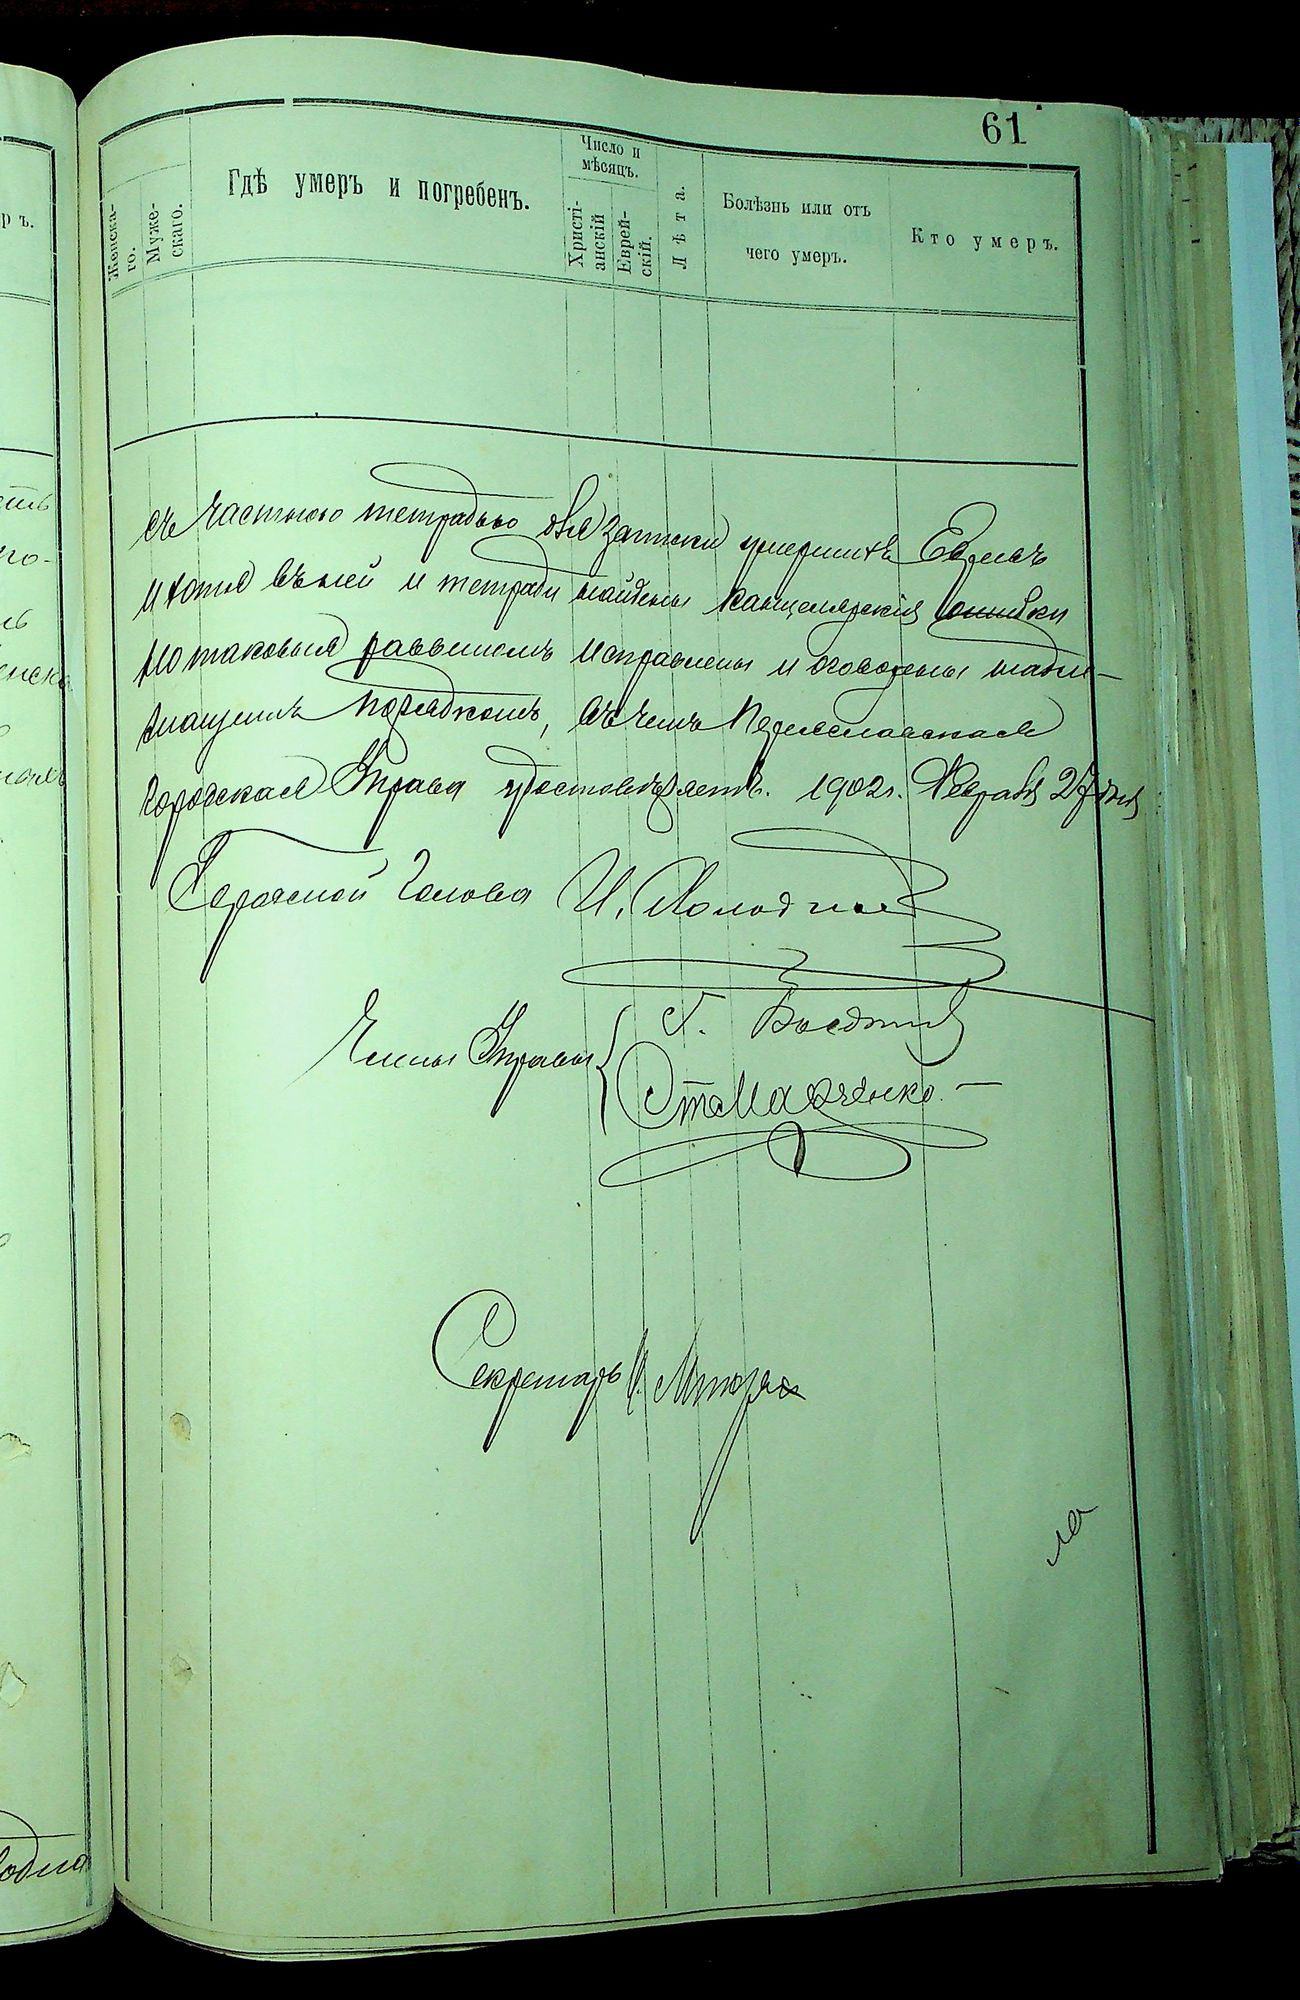 61
Женска-
го.
Муже-
скаго.
Гдѣ умеръ и погребенъ.
Число и
мѣсяцъ.
Христі-
анскій
Еврей-
скій.
Лѣта.
Болѣзнь или отъ
чего умеръ.
Кто умеръ.
ръ.
съ частною тетрадью для записки умершихъ Евреевъ
и хотя въ ней и тетради найдены канцелярскія ошибки
но таковыя раввиномъ исправлены и оговорены надле-
жащимъ порядкомъ, въ чемъ Переяславская
Городская Управа удостовѣряетъ. 1902 г. Февраля 27 дня
Городской Голова И. Холодный
Члены Управы
Ст Марченко
Секретарь
ла